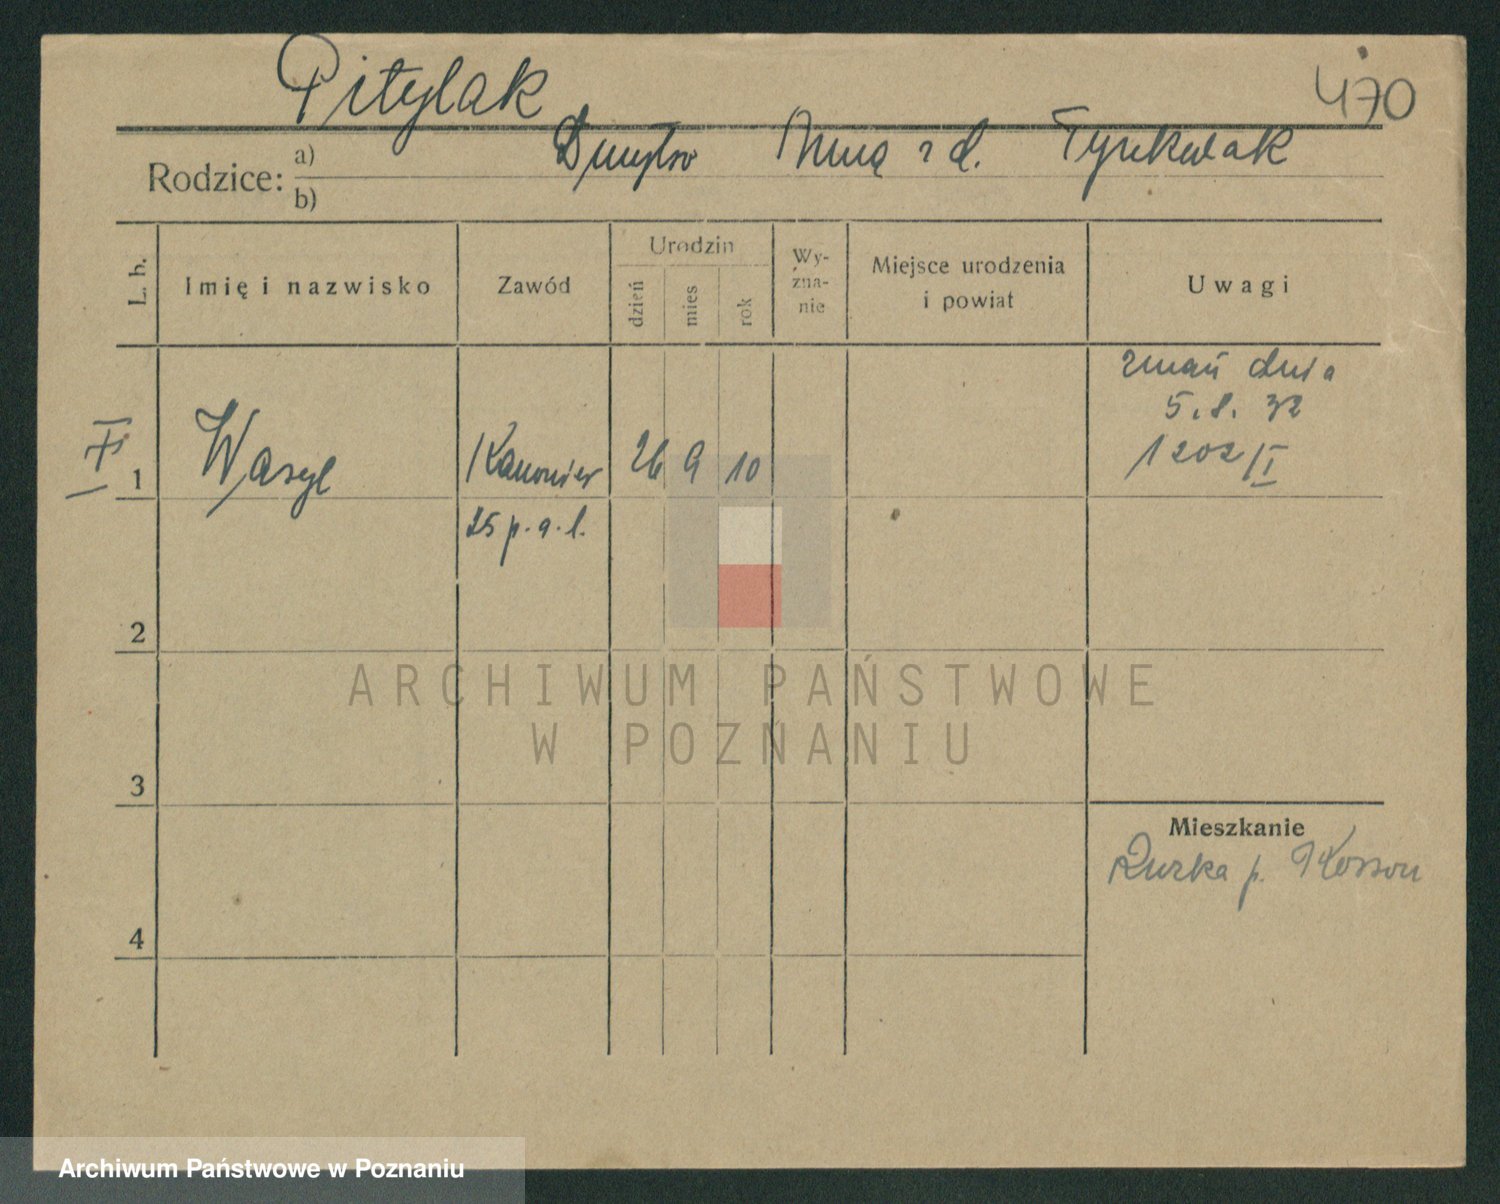 Pitylak
470
Rodzice:
a) Dmytro Anną z d. Tyrekwlak
b)
L. b.
Imię i nazwisko
Zawód
Urodzin
dzień
mies
rok
Wy-
zna-
nie
Miejsce urodzenia
i powiat
Uwagi
zmarł dnia
5. 8. 32
1202/I
I
1 Wasyl Kanonier 26 9 10
25 p. a. l.
2
3
4
Mieszkanie
Rurka p. Kossow
ARCHIWUM PAŃSTWOWE
W POZNANIU
Archiwum Państwowe w Poznaniu